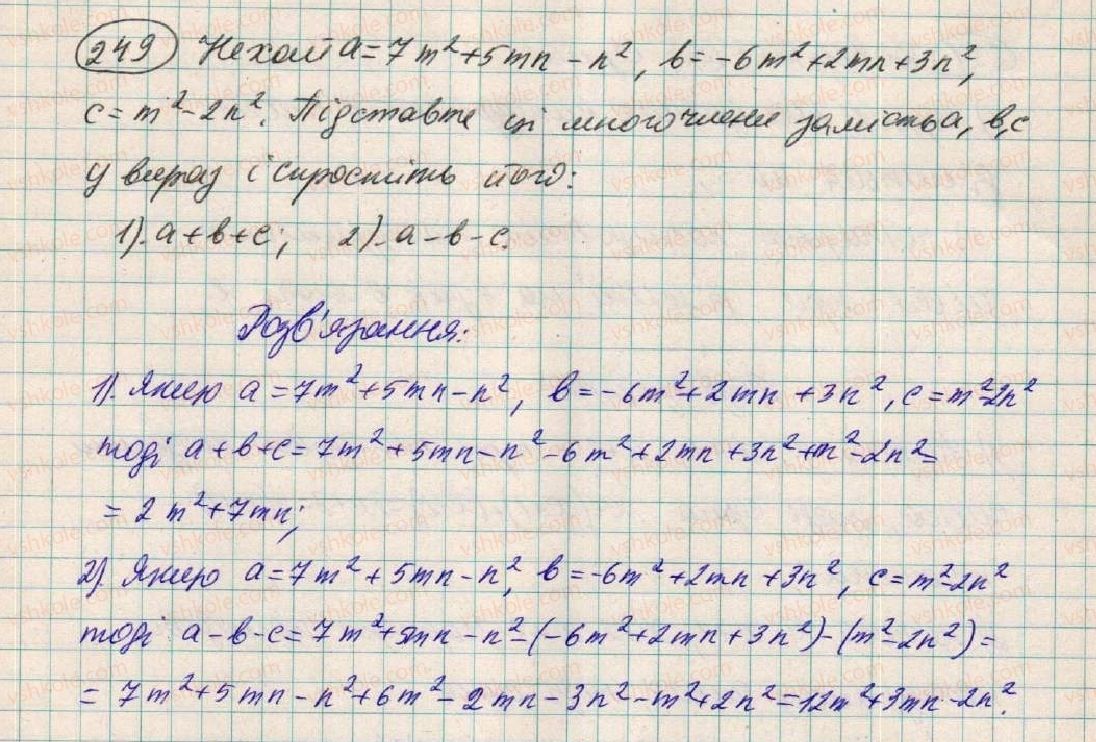 249 Нехай a = 7m² + 5mn - n², b = -6m² + 2mn + 3n²,
c = m² - 2n². Підставте ці многочлени замість a, b, c
у вираз і спростіть його:
1). a + b + c; 2). a - b - c.
Розв'язання:
1). Якщо a = 7m² + 5mn - n², b = -6m² + 2mn + 3n², c = m² - 2n²
тоді a + b + c = 7m² + 5mn - n² - 6m² + 2mn + 3n² + m² - 2n² =
= 2m² + 7mn;
2). Якщо a = 7m² + 5mn - n², b = -6m² + 2mn + 3n², c = m² - 2n²
тоді a - b - c = 7m² + 5mn - n² - (-6m² + 2mn + 3n²) - (m² - 2n²) =
= 7m² + 5mn - n² + 6m² - 2mn - 3n² - m² + 2n² = 12m² + 3mn - 2n².